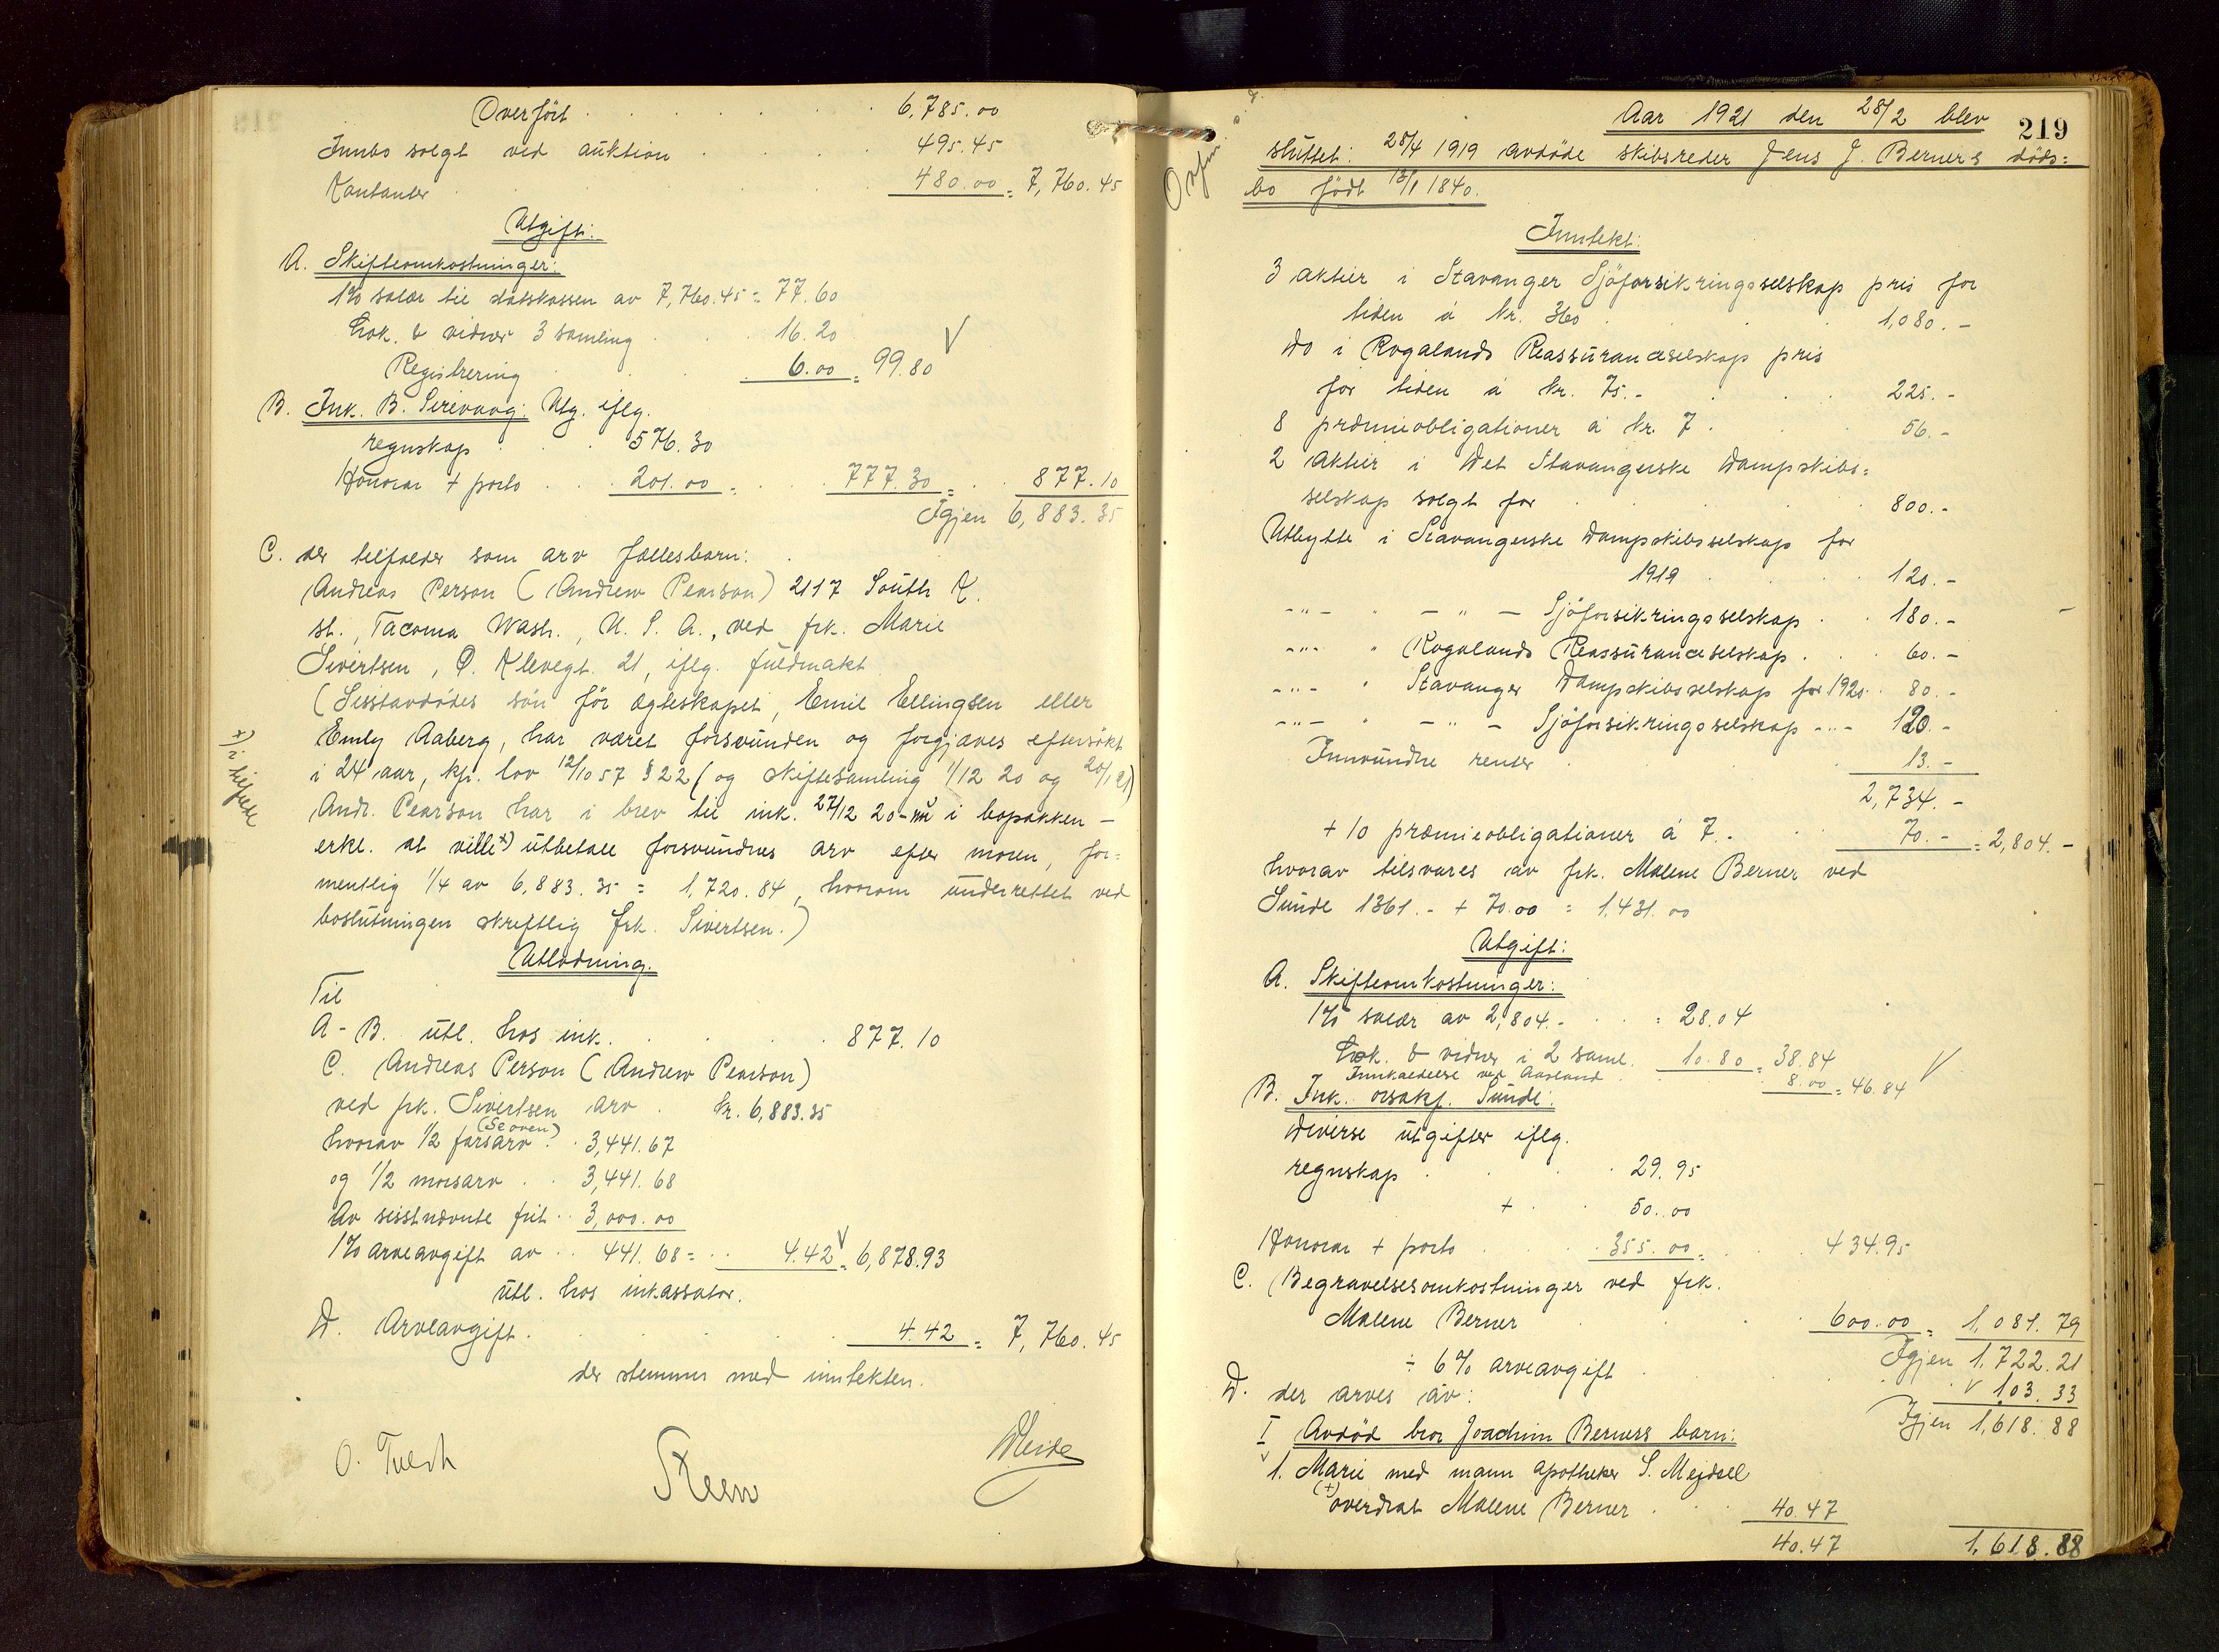 Overført . . . . . . 6,785.00
Innbo solgt ved auktion . . . . 495.45
Kontanter . 480.00 = 7,760.45
Utgift:
A. Skifteomkostninger:
1% salær til statskassen av 7,760.45 = 77.60
Lok. & vidner 3 samling . . . 16.20
Registrering . . . 6.00 = 99.80 V
B. Ink. B. Sirevaag: Utg. iflg.
regnskap . . . 576.30
Honorar + porto . . . 201.00 = . . 777.30 = . . 877.10
Igjen 6,883.35
C. der tilfalder som arv fællesbarn:
Andreas Person (Andrew Pearson) 2117 South K.
st., Tacoma Wash., U. S. A., ved frk. Marie
Sivertsen, Ø. Klevegt. 21, iflg. fuldmakt
(Sisstavdødes søn før ægteskapet, Emil Ellingsen eller
Emly Aaberg, har været forsvunden og forgjæves eftersøkt
i 24 aar, kfr. lov 12/10 57 § 22 (og skiftesamling 1/12 20 og 20/1 21)
Andr. Pearson har i brev til ink. 27/12 20 - nu i bopakken -
erkl. at ville +) utbetale forsvundnes arv efter moren, for=
mentlig 1/4 av 6,883.35 = 1,720.84, hvorom underrettet ved
boslutningen skriftlig frk. Sivertsen.)
+) i tilfælde
Utlodning.
Til
A - B. utl. hos ink. . . . . 877.10
C. Andreas Person (Andrew Pearson)
ved frk. Sivertsen arv . kr. 6,883.35
(Se oven)
hvorav 1/2 farsarv . . 3,441.67
og 1/2 morsarv . . 3,441.68
Av sisstnævnte frit . . 3,000.00
1% arveavgift av . . 441.68 = . . 4.42 V = 6,878.93
utl. hos inkassator.
D. Arveavgift . . . . . . 4.42 = 7,760.45
der stemmer med inntekten.
O. Tveit Steen Heide
219
Aar 1921 den 28/2 blev
sluttet: 28/4 1919 avdøde skibsreder Jens J. Berners døds=
bo født 13/1 1840.
Inntekt:
3 aktier i Stavanger Sjøforsikringsselskap pris for
tiden á kr. 360 . . . 1,080.-
Do i Rogalands Reassuranceselskap pris
for tiden á kr. 75.- . . . 225.-
8 præmieobligationer á kr. 7 . . . 56.-
2 aktier i Det Stavangerske Dampskibs=
selskap solgt for . . . 800.-
Utbytte i Stavangerske Dampskibsselskap for
1919 . . . 120.-
-"- " - " - Sjøforsikringsselskap . . 180.-
-"- " Rogalands Reassuranceselskap . . . 60.-
-"- " Stavanger Dampskibsselskap for 1920 . . 80.-
-"- " - " - Sjøforsikringsselskap -"- 120.-
Innvundne renter . . 13.-
2,734.-
+ 10 præmieobligationer á 7.- . . 70.- = 2,804.-
hvorav tilsvares av frk. Malene Berner ved
Sunde 1361.- + 70.00 = 1,431.00
Utgift:
A. Skifteomkostninger:
1% salær av 2,804.- . . . = 28.04
Lok. & vidner i 2 saml. 10.80 = 38.84
Innkaldelse ved Aarland . . 8.00 = 46.84 V
B. Ink. orsakf. Sunde:
Diverse utgifter iflg.
regnskap . . . 29.95
+ . . 50.00
Honorar + porto . . . 355.00 = . . 434.95
C. Begravelsesomkostninger ved frk.
Malene Berner . . . 600.00 = 1,081.79
Igjen 1,722.21
÷ 6% arveavgift . . . V 103.33
D. der arves av:
Igjen 1,618.88
I Avdød bror Joachim Berners barn:
V 1. Marie med mann apotheker S. Mejdell
(+) overdrat Malene Berner . . . 40.47
40.47 1,618.88